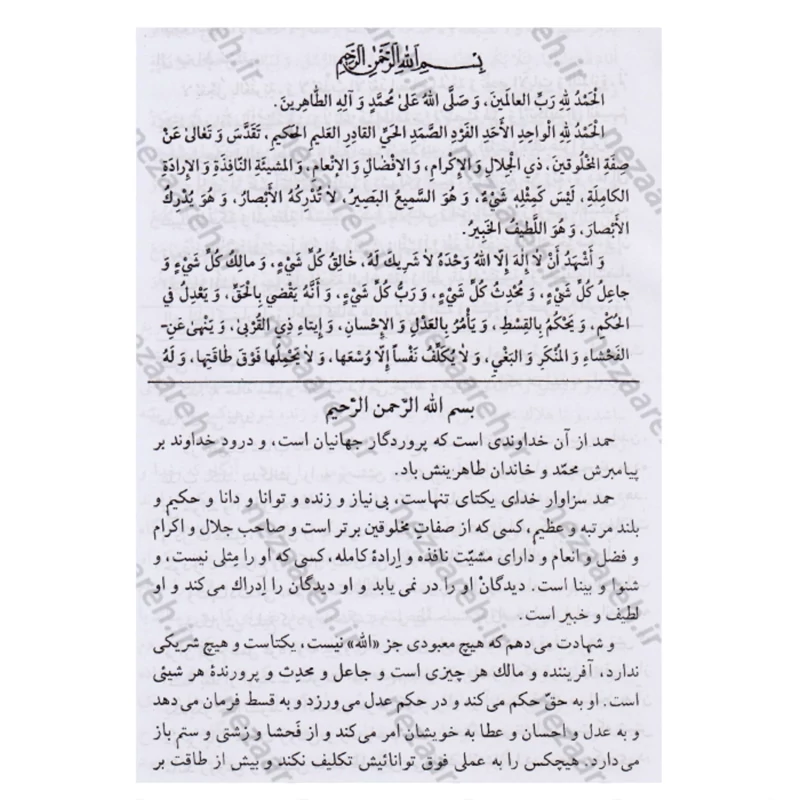 بِسْمِ اللهِ الرَّحْمٰنِ الرَّحِيمِ
الْحَمْدُ لِلّٰهِ رَبِّ العالَمينَ، وَ صَلَّى اللهُ عَلىٰ مُحَمَّدٍ وَ آلِهِ الطّاهِرينَ.
الْحَمْدُ لِلّٰهِ الْواحِدِ الأَحَدِ الفَرْدِ الصَّمَدِ الحَيِّ القادِرِ العَليمِ الحَكيمِ، تَقَدَّسَ وَ تَعٰالىٰ عَنْ
صِفَةِ المَخْلُوقينَ، ذي الجَلالِ وَ الإِكْرامِ، وَ الإِفْضالِ وَ الإِنْعامِ، وَ المَشيئَةِ النّافِذَةِ وَ الإِرادَةِ
الكامِلَةِ، لَيْسَ كَمِثْلِهِ شَيْءٌ، وَ هُوَ السَّميعُ البَصيرُ، لاٰ تُدْرِكُهُ الأَبْصارُ، وَ هُوَ يُدْرِكُ
الأَبْصارَ، وَ هُوَ اللَّطيفُ الخَبِيرُ.
وَ أَشْهَدُ أَنْ لاٰ إِلٰهَ إِلَّا اللهُ وَحْدَهُ لاٰ شَرِيكَ لَهُ، خٰالِقُ كُلِّ شَيْءٍ، وَ مالِكُ كُلِّ شَيْءٍ وَ
جاعِلُ كُلِّ شَيْءٍ، وَ مُحْدِثُ كُلِّ شَيْءٍ، وَ رَبُّ كُلِّ شَيْءٍ، وَ أَنَّهُ يَقْضي بِالْحَقِّ، وَ يَعْدِلُ فِي
الحُكْمِ، وَ يَحْكُمُ بِالقِسْطِ، وَ يَأْمُرُ بِالْعَدْلِ وَ الإِحْسانِ، وَ إيتاءِ ذِي القُرْبىٰ، وَ يَنْهىٰ عَنِ‍
الفَحْشاءِ وَ المُنْكَرِ وَ البَغْيِ، وَ لاٰ يُكَلِّفُ نَفْساً إِلَّا وُسْعَها، وَ لاٰ يَحْمِلُها فَوْقَ طاقَتِها، وَ لَهُ
بسم الله الرّحمن الرّحیم
حمد از آن خداوندی است که پروردگار جهانیان است، و درود خداوند بر
پیامبرش محمّد و خاندان طاهرینش باد.
حمد سزاوار خدای یکتای تنهاست، بی‌نیاز و زنده و توانا و دانا و حکیم و
بلند مرتبه و عظیم، کسی که از صفاتِ مخلوقین برتر است و صاحب جلال و اکرام
و فضل و انعام و دارای مشیّت نافذه و اِرادهٔ کامله، کسی که او را مِثلی نیست، و
شنوا و بینا است. دیدگانْ او را در نمی یابد و او دیدگان را اِدراك می‌کند و او
لطیف و خبیر است.
و شهادت می دهم که هیچ معبودی جز «الله» نیست، یکتاست و هیچ شریکی
ندارد، آفریننده و مالك هر چیزی است و جاعل و محدِث و پرورندهٔ هر شیئی
است. او به حقّ حکم می‌کند و در حکم عدل می ورزد و به قسط فرمان می دهد
و به عدل و احسان و عطا به خویشان امر می‌کند و از فَحشا و زشتی و ستم باز
می‌دارد. هیچکس را به عملی فوق توانائیش تکلیف نکند و بیش از طاقت بر
nezaareh.ir